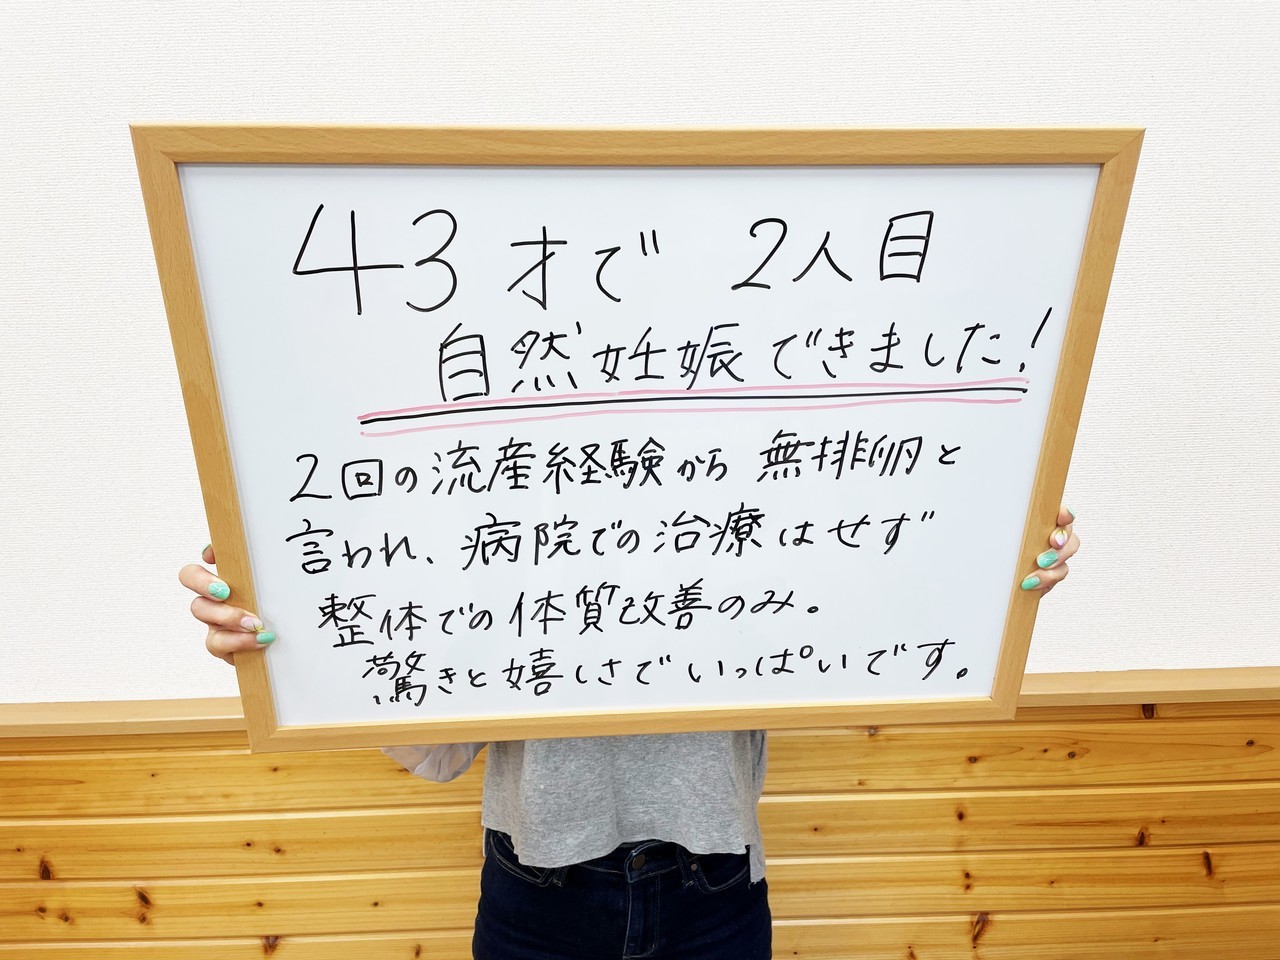 43才で 2人目
自然妊娠できました!
2回の流産経験から 無排卵と
言われ、病院での治療はせず
整体での体質改善のみ。
驚きと嬉しさでいっぱいです。